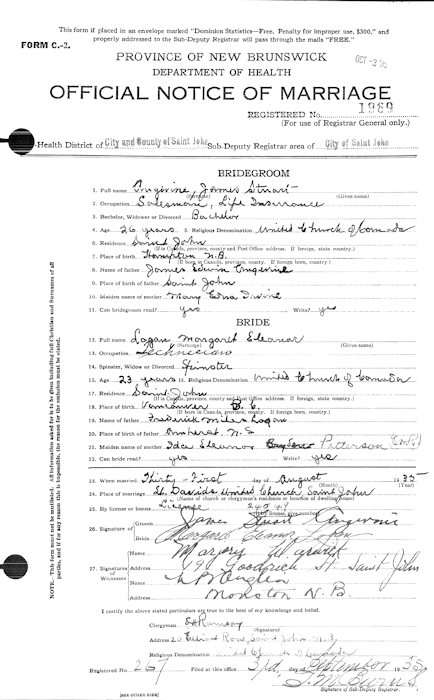 This form if placed in an envelope marked "Dominion Statistics—Free. Penalty for improper use, $300," and
properly addressed to the Sub-Deputy Registrar will pass through the mails "FREE."
FORM C.-2.
PROVINCE OF NEW BRUNSWICK
DEPARTMENT OF HEALTH
OFFICIAL NOTICE OF MARRIAGE
REGISTERED No. 1969
(For use of Registrar General only.)
-Health District of City and County of Saint John Sub-Deputy Registrar area of City of Saint John
BRIDEGROOM
1. Full name Angevine, James Stuart
(Surname) (Given name)
2. Occupation Salesman, Life Insurance
3. Bachelor, Widower or Divorced Bachelor
4. Age 26 years 5. Religious Denomination United Church of Canada
6. Residence Saint John
(If in Canada, province, county and Post Office address. If foreign, state country.)
7. Place of birth Hampton N.B.
(If born in Canada, province, county. If foreign, state country.)
8. Name of father James Edwin Angevine
9. Place of birth of father Saint John
10. Maiden name of mother Mary Edna Irvine
11. Can bridegroom read? yes Write? yes
BRIDE
12. Full name Logan Margaret Eleanor
(Surname) (Given name)
13. Occupation Technician
14. Spinster, Widow or Divorced Spinster
15. 23 years 16. Religious Denomination United Church of Canada
17. Residence Saint John
(If in Canada, province, county and Post Office address. If foreign, state country.)
18. Place of birth Vancouver B.C.
(If born in Canada, province, county. If foreign, state country.)
19. Name of father Frederick Miles Logan
20. Place of birth of father Amherst N.S
21. Maiden name of mother Ida Eleanor Patterson
22. Can bride read? yes Write? yes
23. When married Thirty-First day of August 1935
(Month) (Year)
24. Place of marriage St. Davids United Church, Saint John
(Name of church or clergyman's residence or location of dwelling house)
25. By license or banns License
(If by license, give number)
26. Signature of
Groom James Stuart Angevine
Bride Margaret Eleanor Logan
27. Signature of Witnesses
Name Marjory
Address 190 Goodrich St. Saint John
Name
Address Moncton N.B.
I certify the above stated particulars are true to the best of my knowledge and belief.
Clergyman
(Signature)
Address Row, Saint John N.B.
Religious Denomination United Church of Canada
Registered No. 267 Filed at this office 3rd day of September 1935
Signature of Sub-Deputy Registrar.
NOTE.—This form must not be mutilated. All information asked for is to be given including full Christian and Surnames of all
parties, and if for any reason this is impossible, the reason for the omission must be stated.